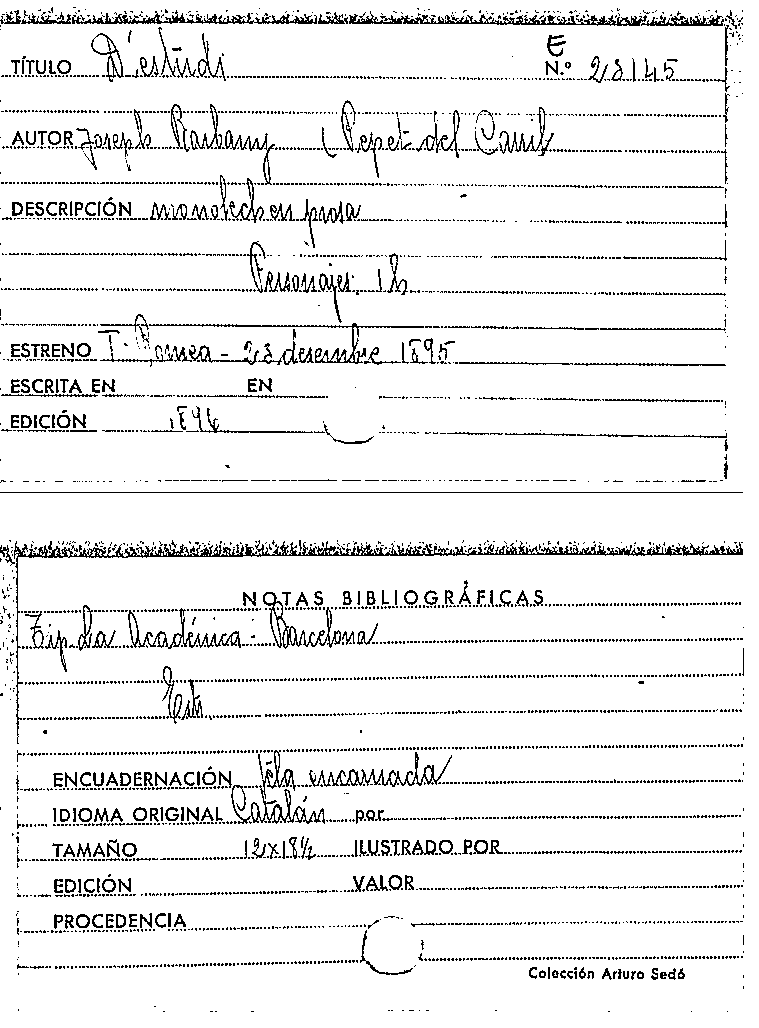 E
TÍTULO D'estudi N.º 28145
AUTOR Joseph Barbany (Pepet del Carril
DESCRIPCIÓN monolech en prosa
Personajes: 1 h.
ESTRENO T. Romea - 28 desembre 1895
ESCRITA EN EN
EDICIÓN 1896
NOTAS BIBLIOGRÁFICAS
Tip. La Académica - Barcelona
ENCUADERNACIÓN tela encarnada
IDIOMA ORIGINAL Catalán por
TAMAÑO 12x18½ ILUSTRADO POR
EDICIÓN VALOR
PROCEDENCIA
Colección Arturo Sedó